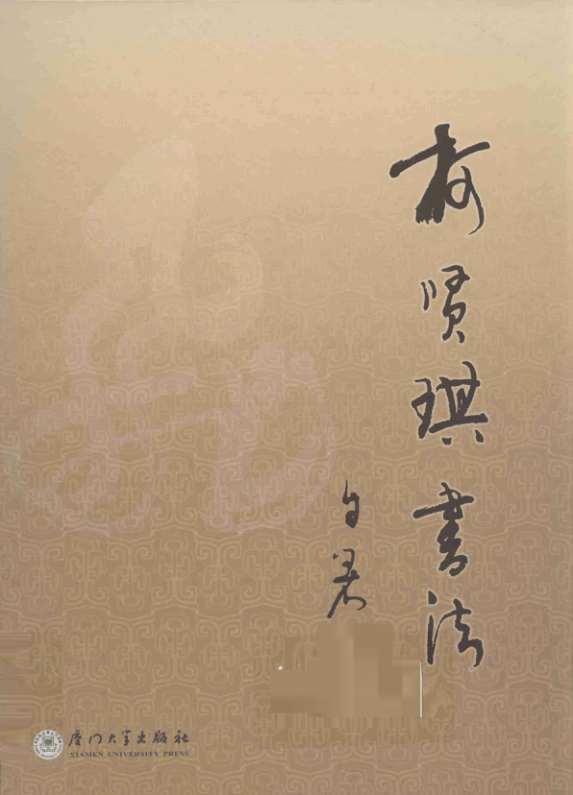 柯贤琪書法
自署
厦门大学出版社
XIAMEN UNIVERSITY PRESS